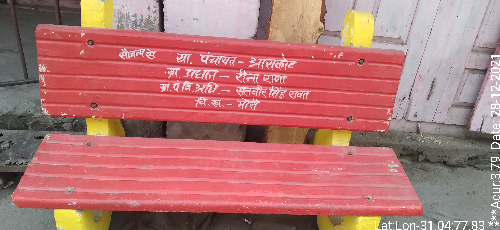 सौजन्य से ग्रा. पंचायत - भ्रासकोट
ग्रा. प्रधान - रीना राणा
ग्रा. पं. वि. अधि - सतवीर सिंह रावत
वि. ख. - मोरी
Lat:Lon-31.04:77.83
*** Acur:3.79 Date: 28-12-2021